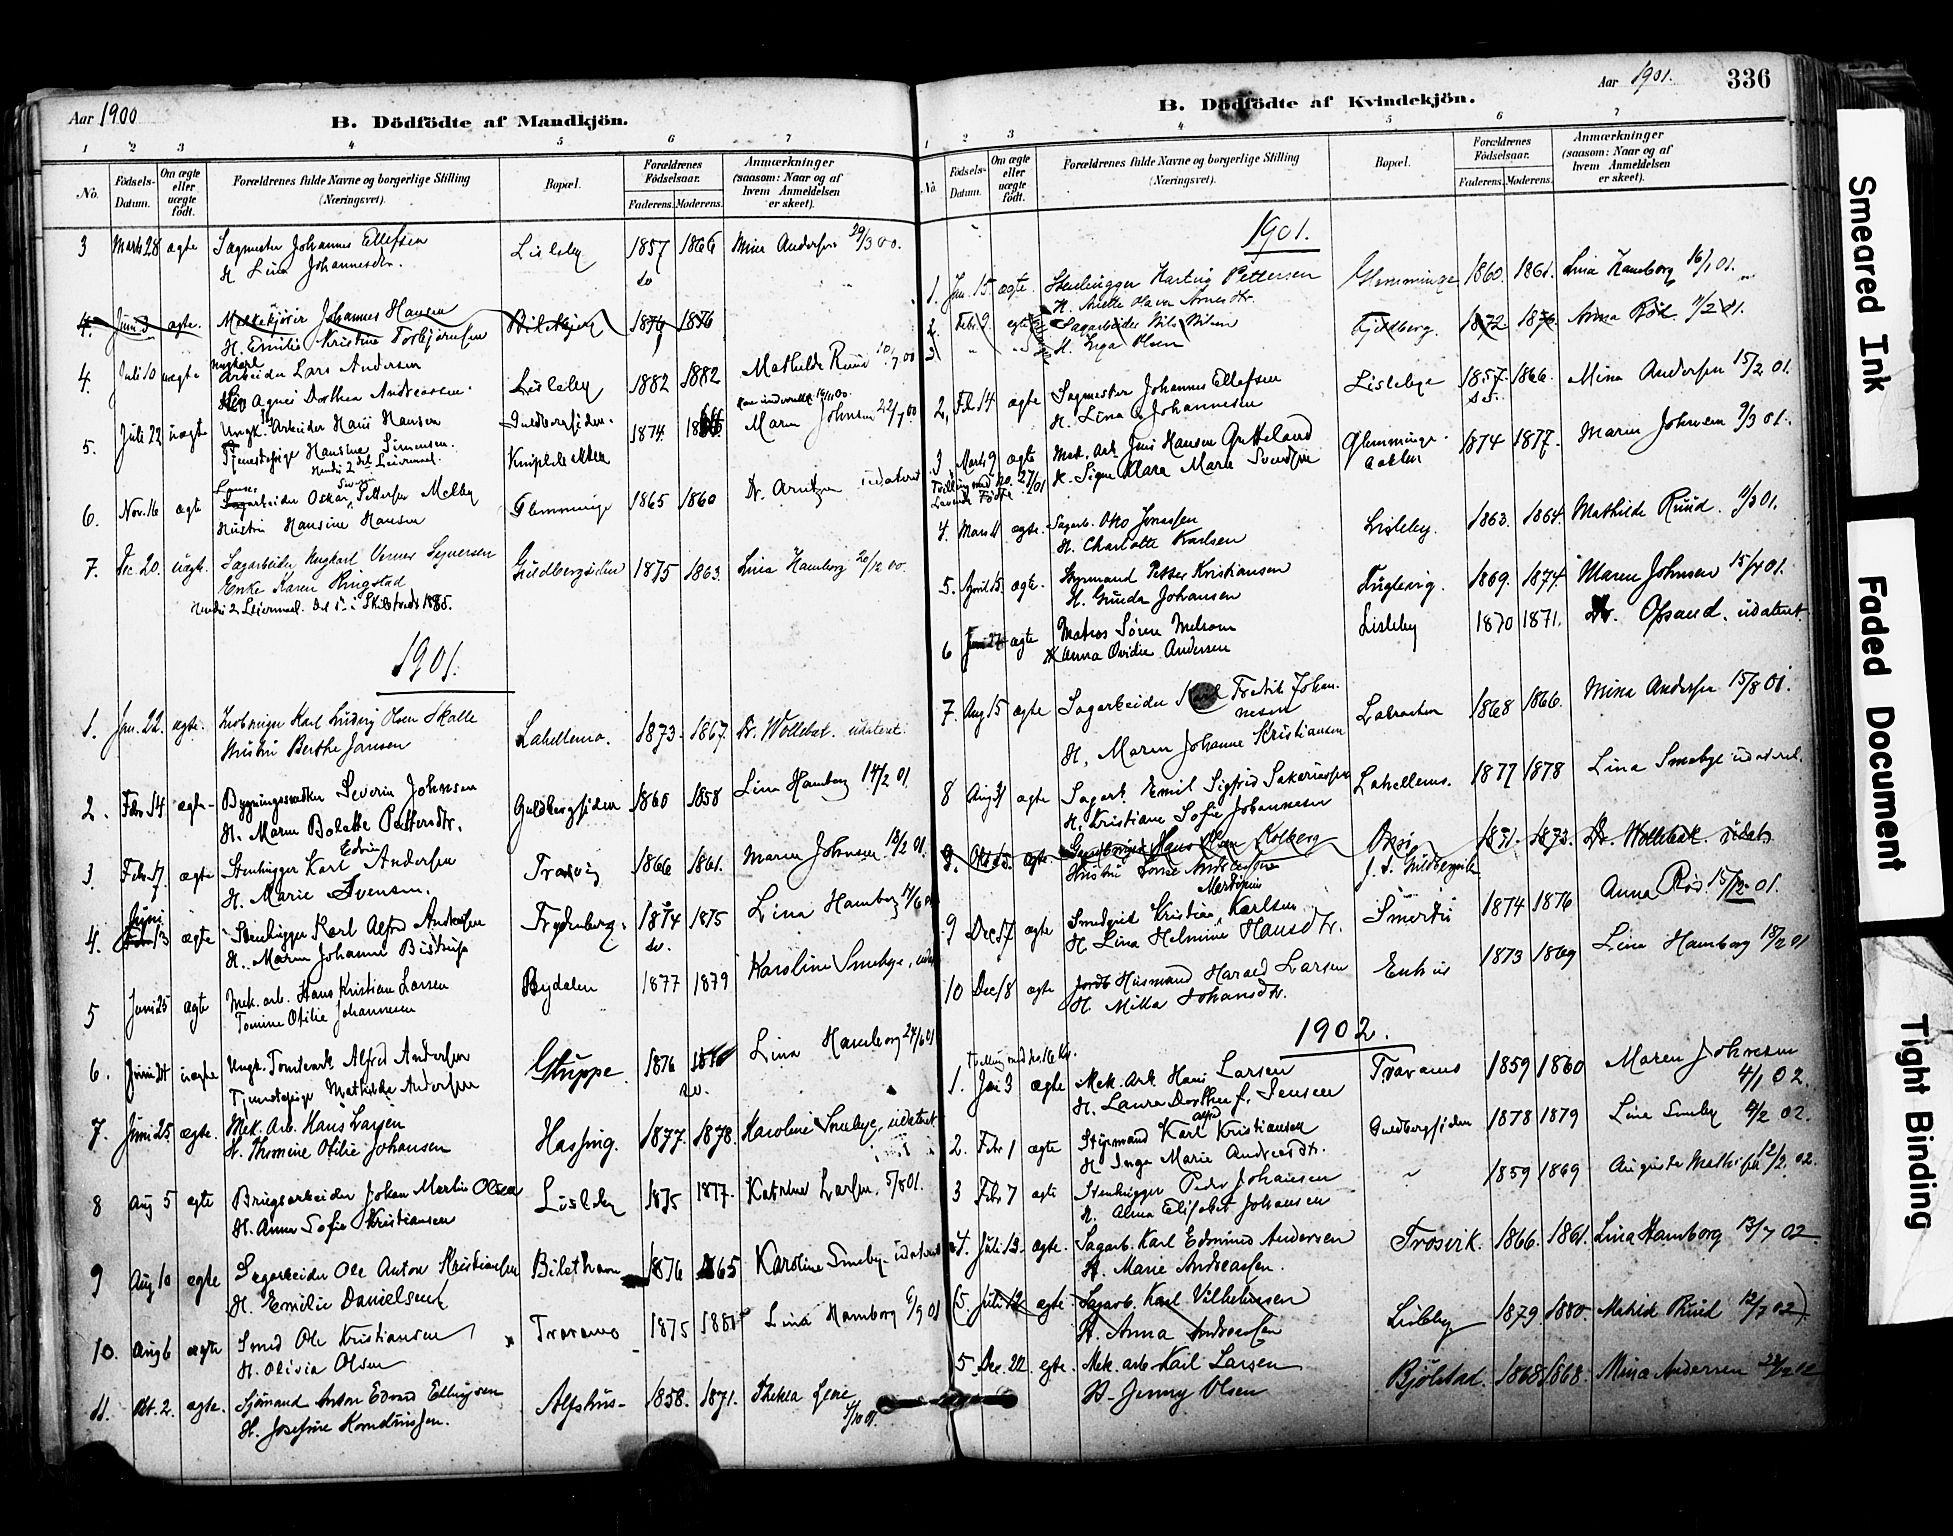 Aar 1900
B. Dödfödte af Mandkjön.
1 2 3 4 5 6 7
No.
Födsels-Datum.
Om ægte eller uægte födt.
Forældrenes fulde Navne og borgerlige Stilling
(Næringsvei).
Bopæl.
Forældrenes Födselsaar.
Faderens. Moderens.
Anmærkninger
(saasom: Naar og af
hvem Anmeldelsen
er skeet).
3 Marts 28 ægte Sagmester Johannes Ellefsen Lisleby 1857 1866 Mina Andersen 29/3 00.
H. Lina Johannesdtr. do
4. Juni 3 ægte. Melkekjörer Johannes Hansen 1874 1876
H. Emilie Kristine Torbjørnsen
4. Juli 10 uægte Ungkarl Arbeider Lars Andersen Lisleby 1882 1882 Mathilde Ruud 10/7 00
Agnes Dorthea Andreassen
5. Juli 22 uægte Ungk. Arbeider Hans Hansen Guldbergsiden. 1874 Maren Johnsen 22/7 00.
Tjenestepige Hansine Simensen.
Hendes 2det Leiermaal.
6. Nov. 16 ægte Oskar Pettersen Melby Glemminge 1865 1860 Dr. Arntzen udateret
Hustru Hansine Hansen
7. Dec. 20. uægt. Sagarbeider Ungkarl Verner Syversen Guldbergsiden 1875 1863. Lina Hamborg 20/12 00.
Enke Karen Ringstad
1901.
1. Jan. 22. ægte. Karl Ludvig Olsen Skolle Lahellemo. 1873. 1867. Dr. Wollebæk. udateret.
Hustru Berthe Jansen
2. Febr 14 ægte Bygningssnedker Severin Johnsen Guldbergsiden 1860 1858 Lina Hamborg 14/2 01
H. Maren Bolette Pettersdtr.
3. Febr. 17 ægte Stenhugger Karl Edvin Andersen Trosvig 1866 1861. Maren Johnsen 18/2 01.
H. Marie Svensen.
4. Juni 13 ægte Stenhugger Karl Alfred Andersen Frydenberg. 1874 1875 Lina Hamborg 14/6 01
H. Maren Johanne Bistrup do.
5 Juni 25 ægte Mek. arb. Hans Kristian Larsen Bydalen 1877 1879 Karoline Smebye,
Tomine Otilie Johannesen
6. Juni 24 uægte Ungk. Tomtearb. Alfred Andersen Gluppe. 1876 Lina Hamborg 24/6 01
Tjenestepige Mathilde Andersen do.
7. Juni 25 ægte. Mek. Arb. Hans Larsen Hassing. 1877. 1878. Karoline Smebye, udateret
H. Thomine Otilie Johansen
8 Aug 5 ægte Brugsarbeider Johan Martin Olsen Lisleby 1875 1877. Katrine Larsen. 5/8 01.
H. Anna Sofie Kristiansen
9 Aug 10 ægte Sagarbeider Ole Anton Kristiansen 1876 1865 Karoline Smeby. udateret
H. Emilie Danielsen
10. Aug 6 ægte Smed Ole Kristiansen Traranes 1875 Lina Hamborg 6/9 01
H. Olivia Olsen
11. Okt. 2. ægte. Sjömand Anton Edvard Ellingsen Alfshus 1858. 1871. Thekla Lene
H. Josefine 4/10 01.
Aar 1901. 336
B. Dödfödte af Kvindekjön.
1 2 3 4 5 6 7
No.
Födsels-Datum.
Om ægte eller uægte födt.
Forældrenes fulde Navne og borgerlige Stilling
(Næringsvei).
Bopæl.
Forældrenes Födselsaar.
Faderens. Moderens.
Anmærkninger
(saasom: Naar og af
hvem Anmeldelsen
er skeet).
1901.
1. Jan. 15 ægte. Stenhugger Hartvig Pettersen Glemminge 1860. 1861. Lina Hamborg 16/1 01.
H. Anette Olava Arnesdtr.
2. Febr. 9. Sagarbeider Nils Nilsen Fjeldberg. 1872 1876. Anna Röd. 11/2 01.
3 " H. Inga Olsen
2, Febr 14 ægte Sagmester Johannes Ellefsen Lislebye 1857. 1866. Mina Andersen 15/2 01.
H. Lina Johannesen
3 Marts 9 ægte Mek. Arb. Jens Hansen Glemminge 1874 1877. Maren Johnsen 9/3 01.
H. Signe Klara Marie
4. Mars 11 ægte. Sagarb. Otto Jonassen Lisleby. 1863. 1864. Mathilde Ruud. 11/3 01.
H. Charlotte Karlsen
5. April 15 ægte. Styrmand Petter Kristiansen Fuglevig. 1869. 1874. Maren Johnsen 15/4 01.
H. Gunda Johansen
6 Juni 27 ægte Matros Sören Melsom Lisleby 1870 1871. Dr. Opsand. udateret.
H. Anna Ovidia Andersen
7. Aug 15 ægte Sagarbeider Karl Fredrik Johannesen 1868 1866. Mina Andersen 15/8 01.
H. Maren Johanne Kristiansen
8 Aug 31 ægte Sagarb. Emil Sigfred Sakariassen Lahellemo. 1877 1878 Lina Smebye udateret.
H. Kristiane Sofie Johannesen
9. Okt 15. ægte. Hans Olsen Kolberg 1871. 1873. Dr. Wollebæk udat.
9 Dec 17 ægte Smedsvend Kristian Martinius Karlsen Smertu 1874 1876 Anna Röd. 15/12 01.
H. Lina Helmine Hansdtr.
10 Dec 18 ægte Husmand Harald Larsen Enhus 1873 1869 Lina Hamborg 18/12 01
H. Milla Johansdtr.
1902.
1. Jan 3 ægte Mek. Arb. Hans Larsen Traranes 1859 1860 Maren Johnsen
H. Laura Dorthea f. Jensen 4/1 02.
2. Febr 1 ægte Styrmand Karl Alfred Kristiansen Guldbergsiden 1878 1879 Lina Smeby 4/2 02.
H. Inga Marie Andreasdtr.
3 Febr 7 ægte Stenhugger Peder Johansen " 1859 1869 Augusta 12/2 02.
H. Anna Elisabet Johansen
4. Juli 13. ægte. Sagarb. Karl Edmund Andersen Trosvik. 1866. 1861. Lina Hamborg 13/7 02.
H. Marie Andreassen.
(5. Juli 12 ægte Sagarb. Karl Vilhelmsen Lisleby 1879 1880. Matild Ruud 12/7 02)
H. Anna Andreassen
5 Dec. 22 ægte. Mek. arb Karl Larsen Bjölstad. 1868 1868. Mina Andersen 22/12 02
H. Jenny Olsen
Smeared Ink
Faded Document
Tight Binding